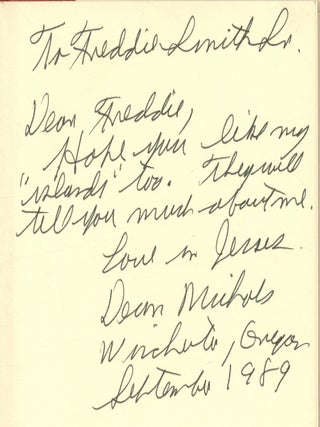 To Freddie Smith Sr.
Dear Freddie,
Hope you like my
"islands" too. They will
tell you much about me.
Love in Jesus.
Dean Nichols
Winchester, Oregon
September 1989